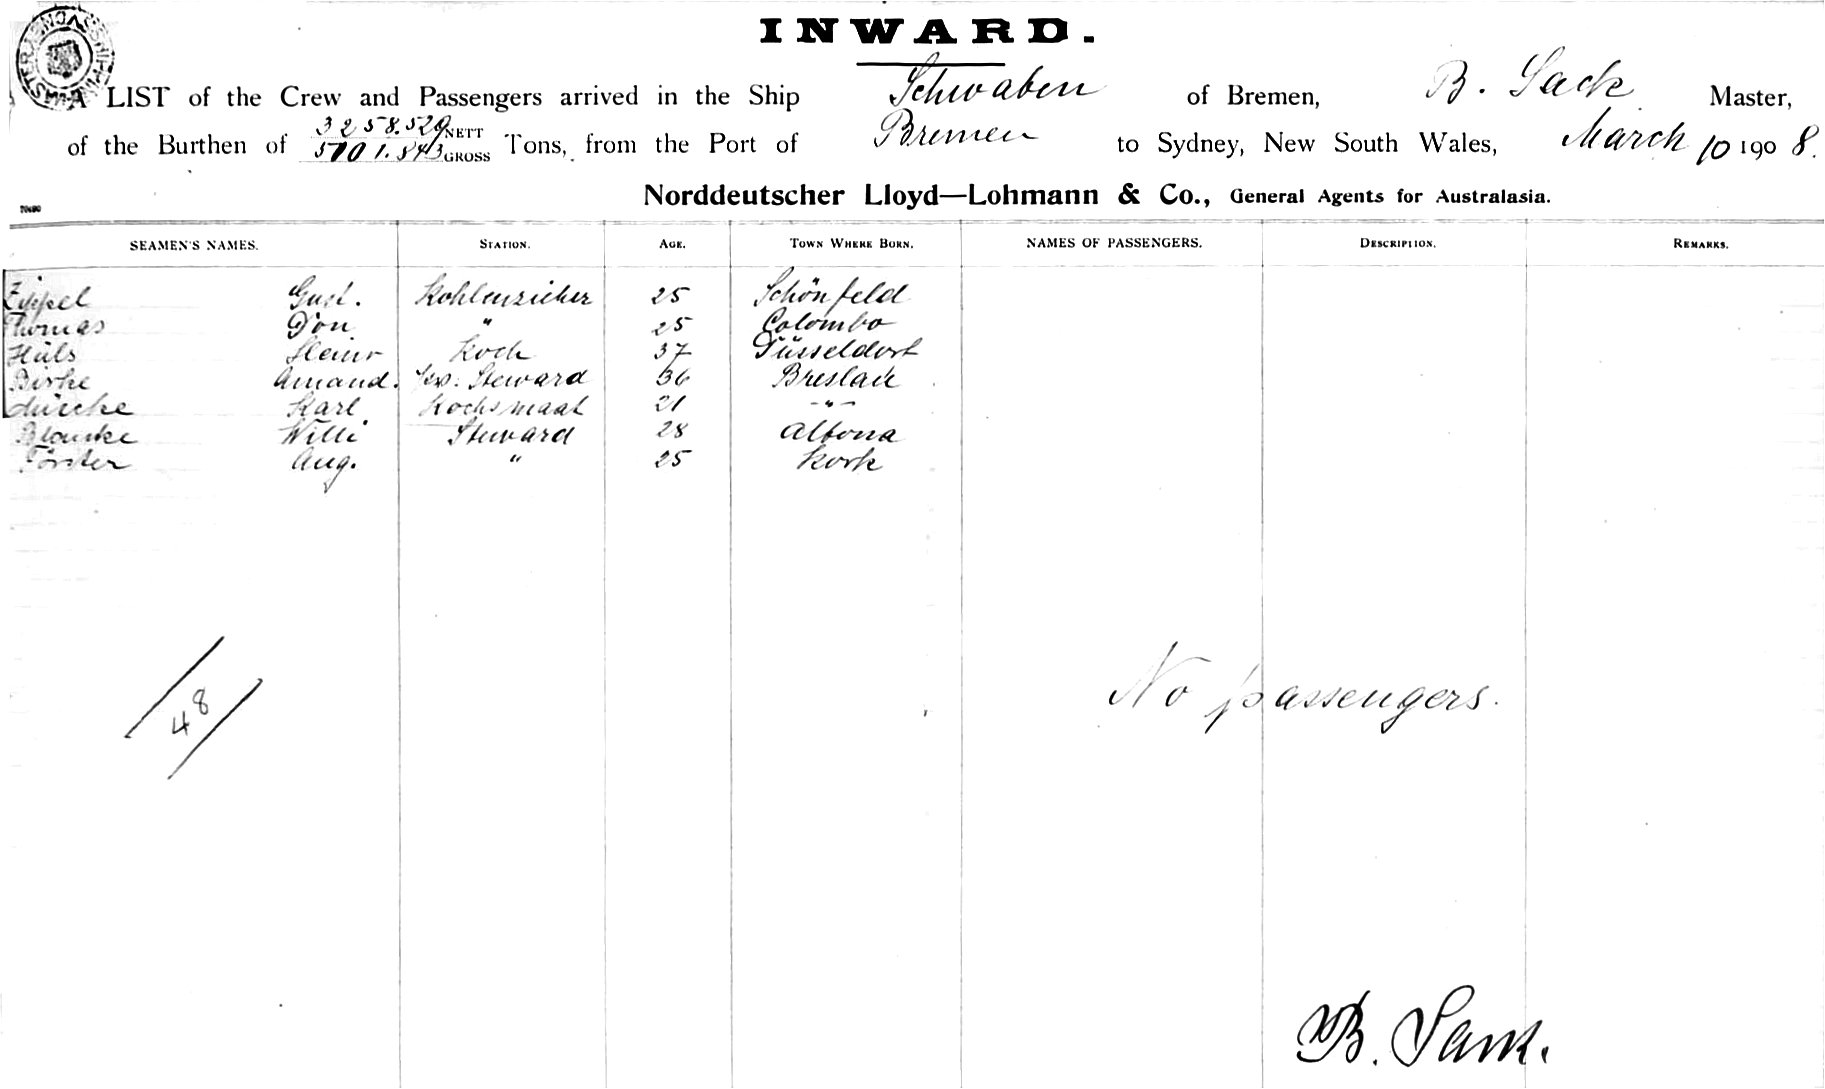 INWARD.
A LIST of the Crew and Passengers arrived in the Ship Schwaben of Bremen, B. Sack Master,
of the Burthen of 3258.529 NETT 5101.843 GROSS Tons, from the Port of Bremen to Sydney, New South Wales, March 10 1908.
Norddeutscher Lloyd—Lohmann & Co., General Agents for Australasia.
SEAMEN'S NAMES. STATION. AGE. TOWN WHERE BORN. NAMES OF PASSENGERS. DESCRIPTION. REMARKS.
Zippel Gust. Kohlenzieher 25 Schönfeld
Thomas Don " 25 Colombo
Hüls Heinr Koch 37 Düsseldorf
Birke Amand. Steward 36 Breslau
Karl Kochsmaat 21 -"-
Willi Steward 28 Altona
Förster Aug. " 25 Kork
48
No passengers.
B. Sack.